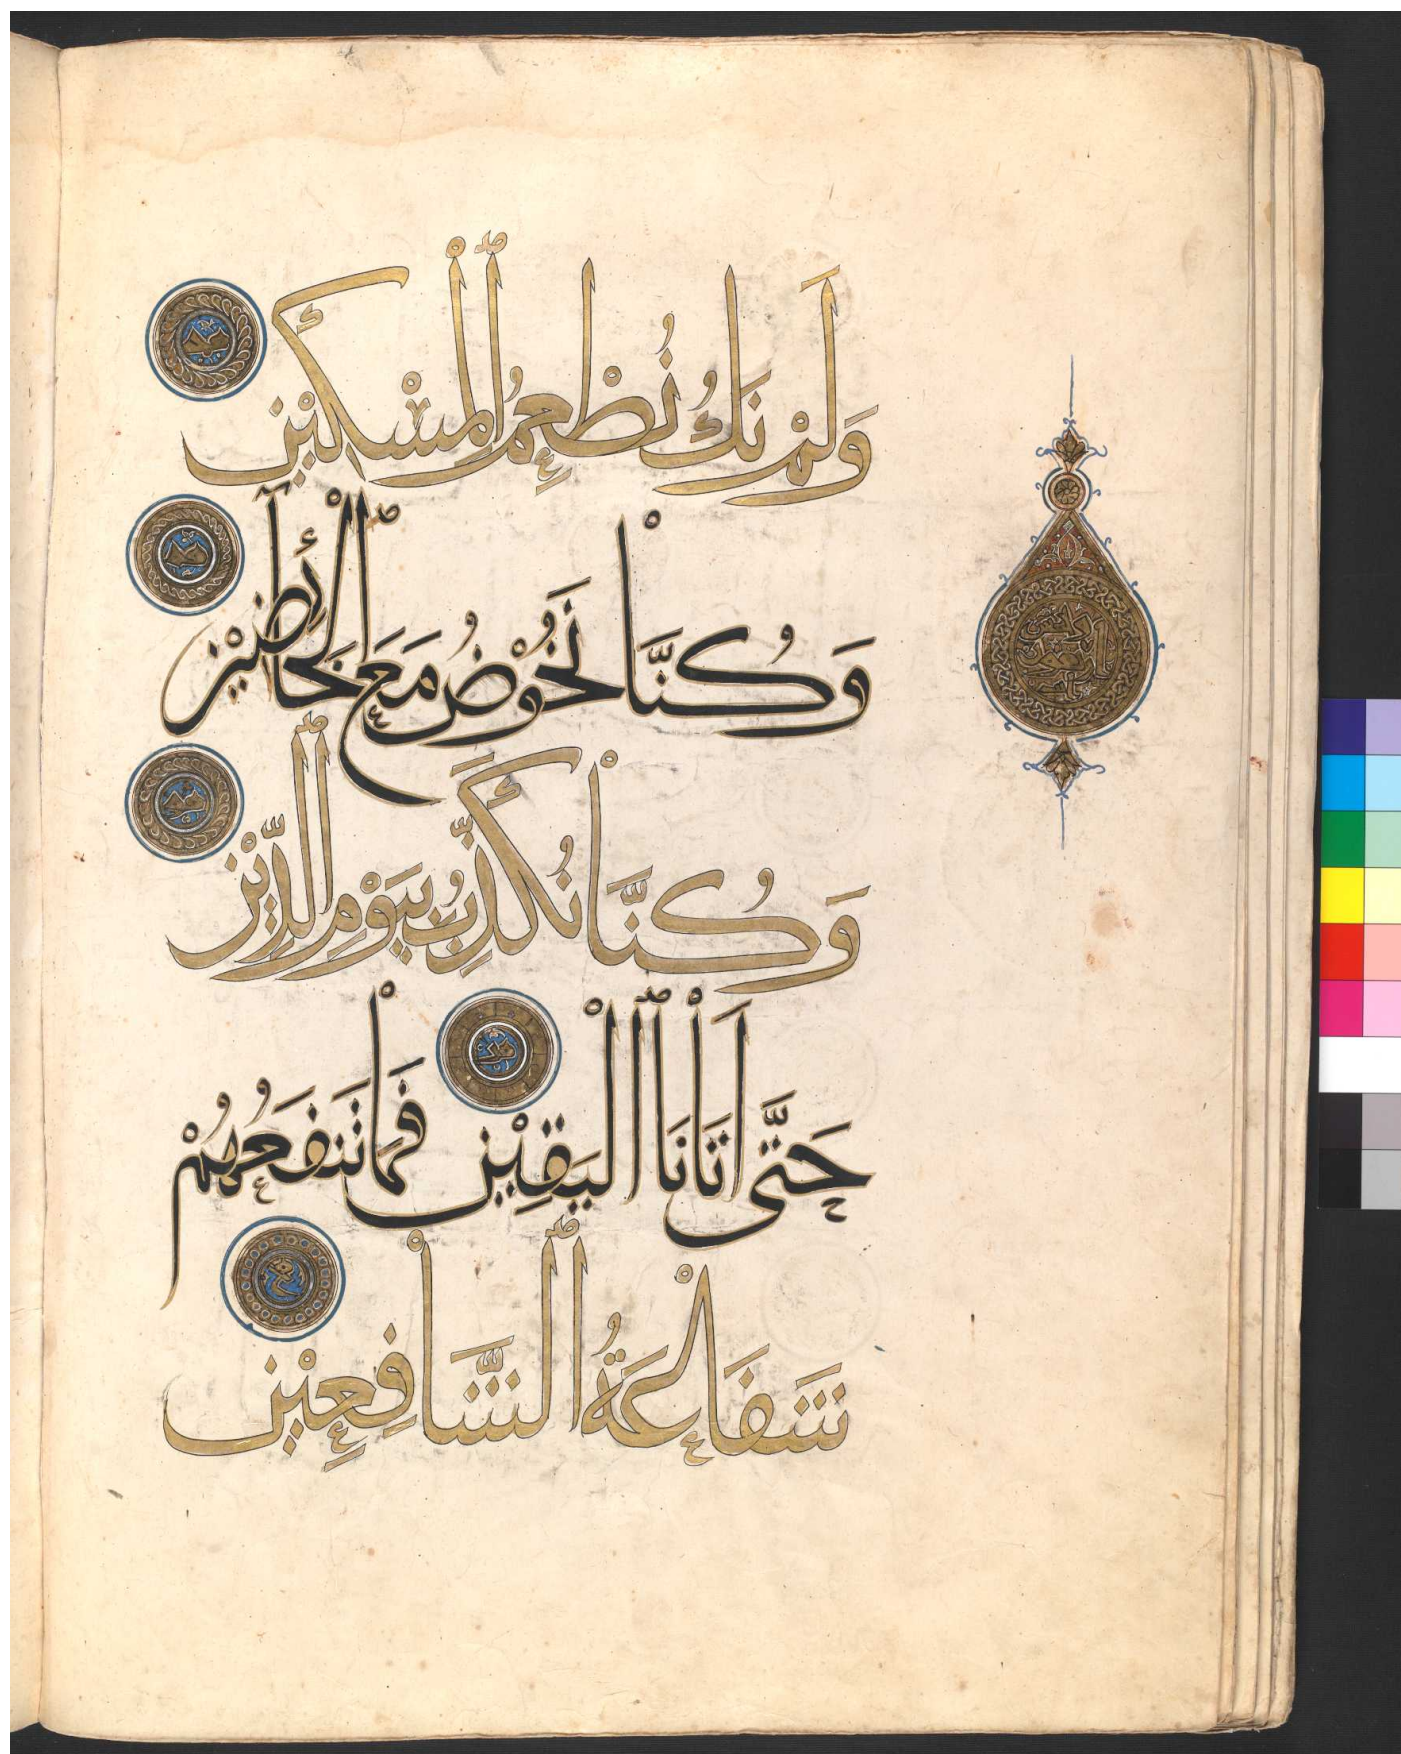 وَلَمْ نَكُ نُطْعِمُ الْمِسْكِيْنَ
وَكُنَّا نَخُوْضُ مَعَ الْخَآئِضِيْنَ
وَكُنَّا نُكَذِّبُ بِيَوْمِ الدِّيْنِ
حَتَّى اَتَانَا الْيَقِيْنُ فَمَا تَنْفَعُهُمْ
شَفَاعَةُ الشَّافِعِيْنَ